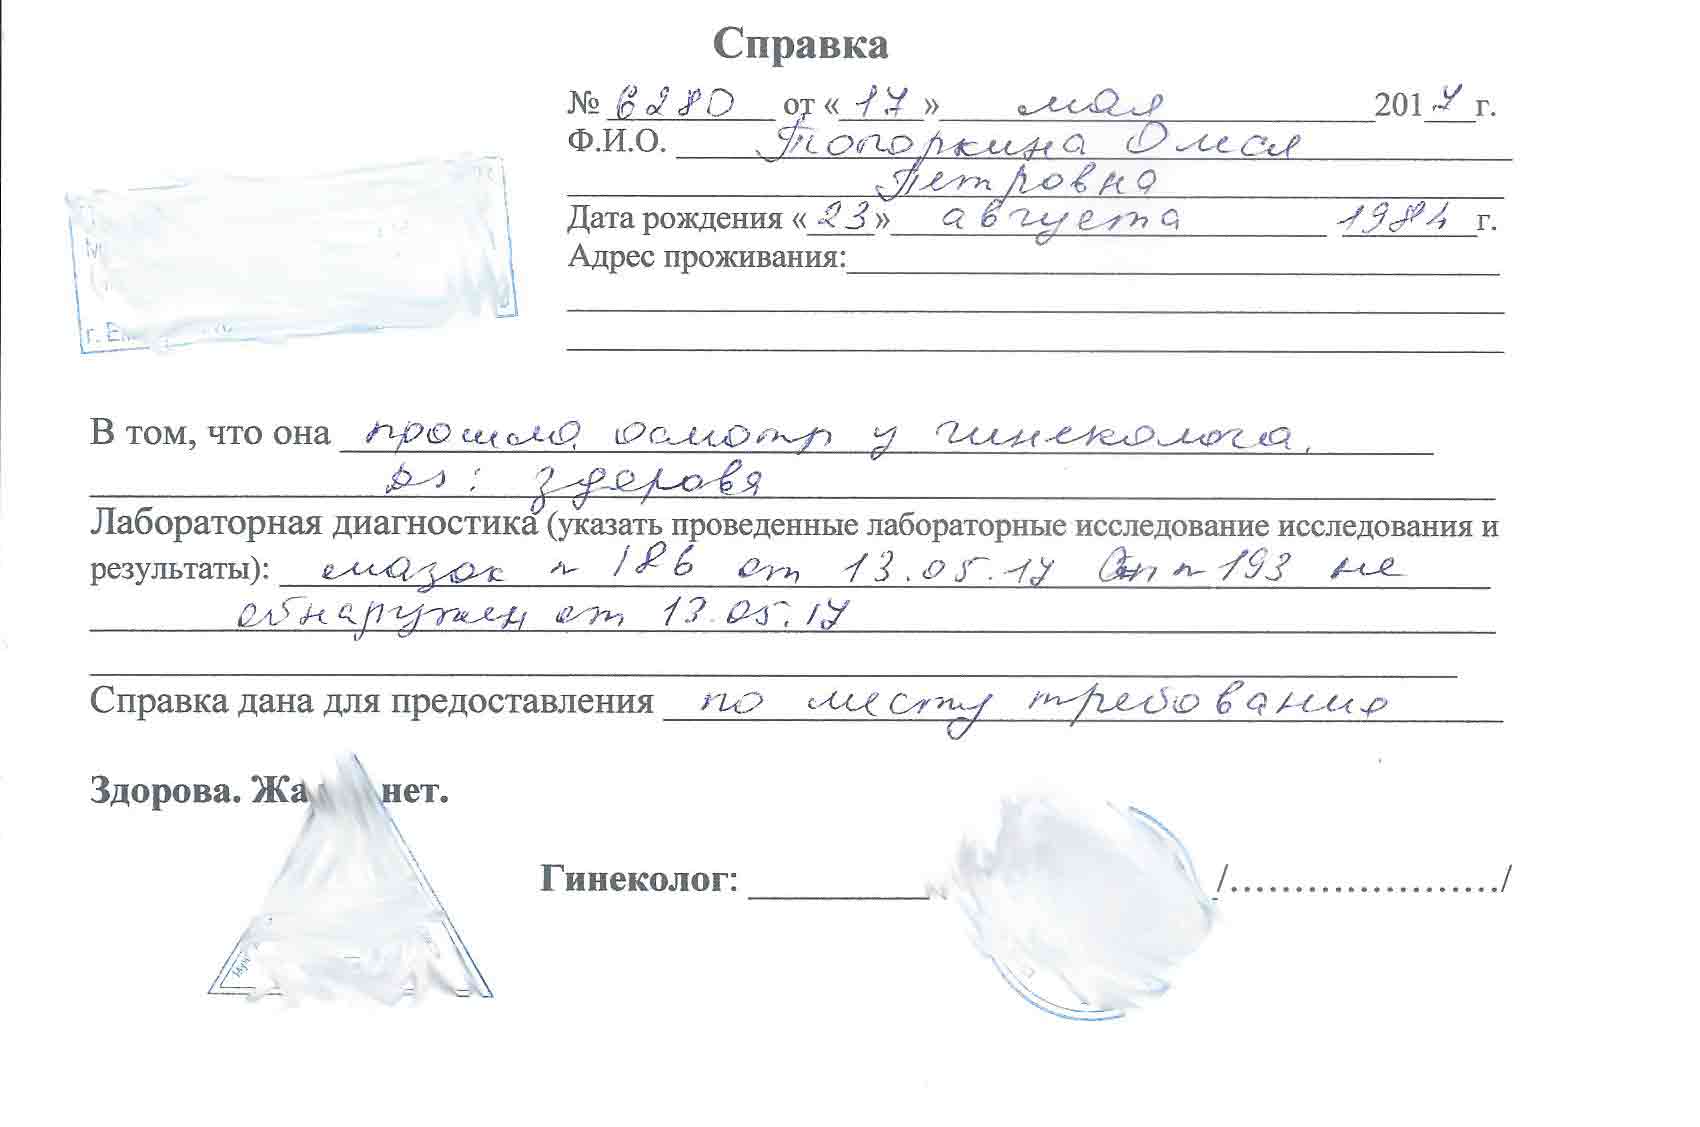 Справка
№ 6280 от «17» мая 2017 г.
Ф.И.О. Топоркина Олеся
Петровна
Дата рождения «23» августа 1984 г.
Адрес проживания:
г. Ек
В том, что она прошла осмотр у гинеколога.
Ds: здорова
Лабораторная диагностика (указать проведенные лабораторные исследование исследования и
результаты): мазок n 186 от 13.05.17 n 193 не
обнаружен от 13.05.17
Справка дана для предоставления по месту требования
Здорова. Жа нет.
Гинеколог: /...................../